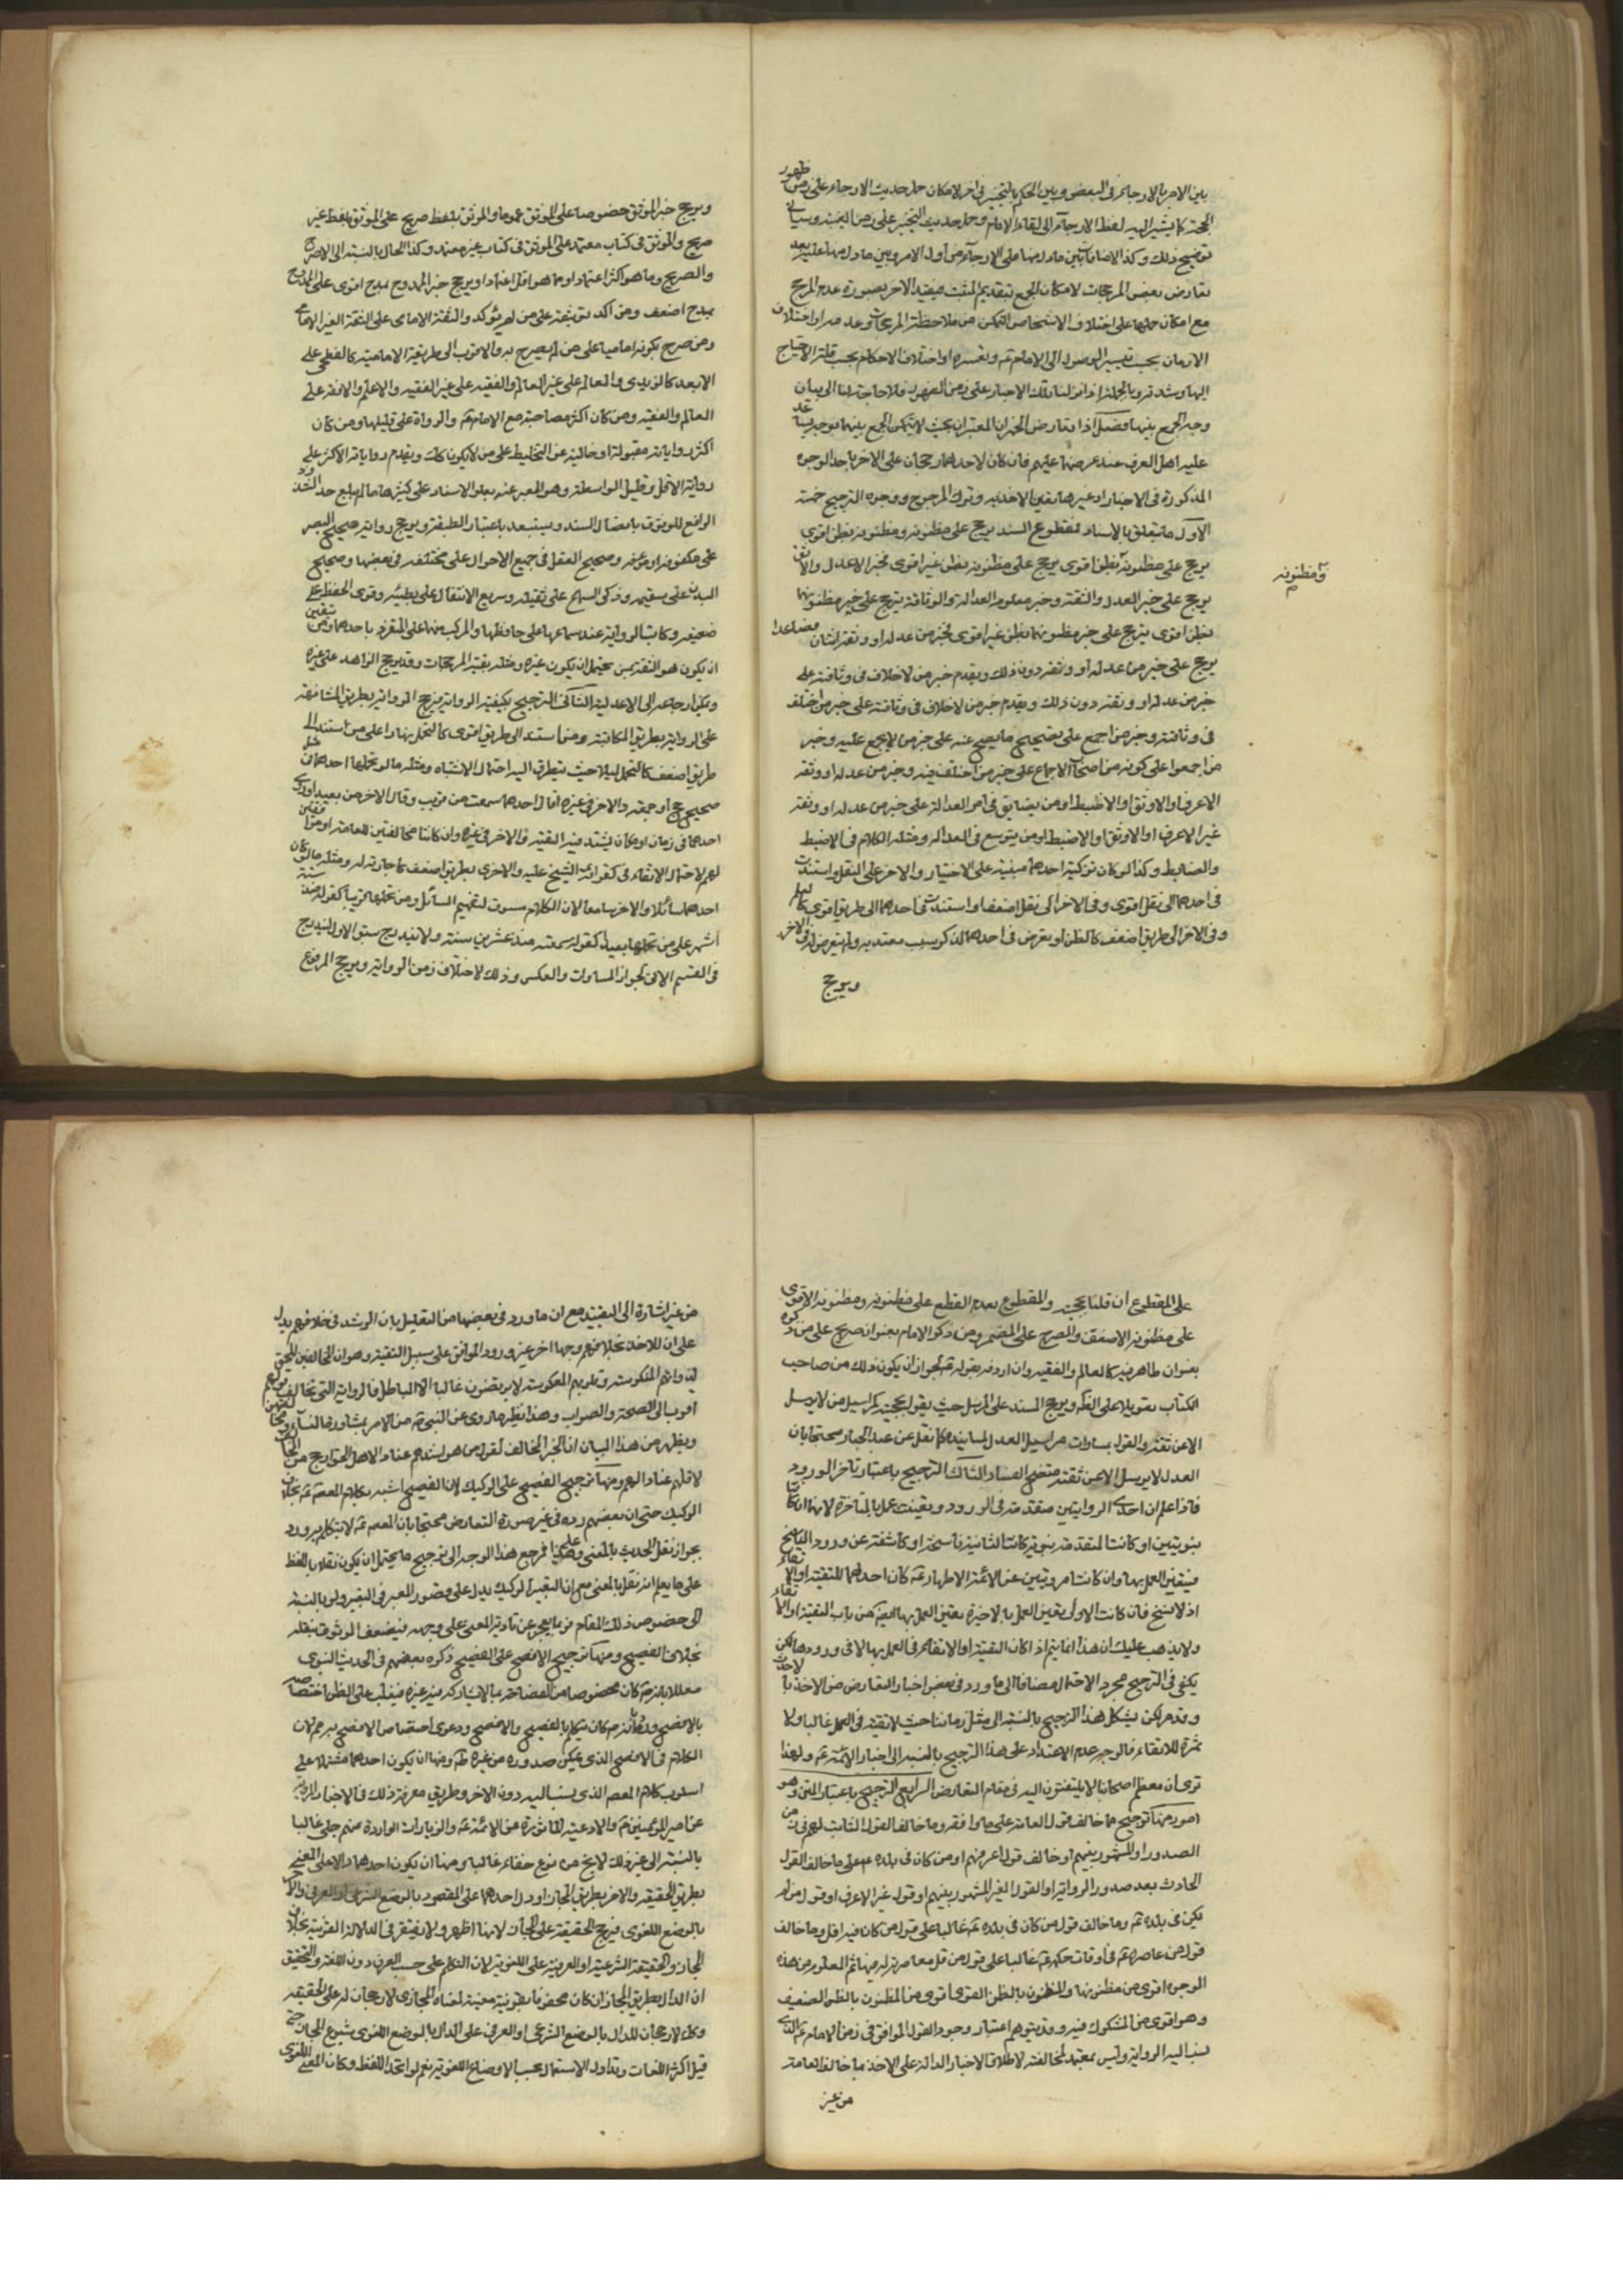 بين الامر بالارجاء فى البعض وبين الحكم بالتخيير فى اخر لامكان حمل حديث الارجاء على زمن ظهور
الحجة كما يشير اليه لفظ الارجاء الى لقاء الامام وحمل حديث التخيير على زمن الغيبة وسياتى
توضيح ذلك وكذا لامنافات بين ما دل منها على الارجاء من اول الامر وبين ما دل منها عليه بعد
تعارض بعض المرجحات لامكان الجمع بتقديم المثبت فيقيد الاخر بصورة عدم المرجح
مع امكان حملها على اختلاف الاشخاص التمكن من ملاحظة المرجحات وعدمه او اختلاف
الازمان بحسب تيسير الوصول الى الامام ع وتعسره او اختلاف الاحكام بحسب قلة الاحتياج
اليها وشدته وبالجملة اذا نزلنا تلك الاخبار على زمن الظهور فلا حاجة لنا الى بيان
وجه الجمع بينها فصل اذا تعارض الخبران المعتبران بحيث لا يمكن الجمع بينهما بوجه يساعد
عليه اهل العرف عند عرضها عليهم فان كان لاحدهما رجحان على الاخر باحد الوجوه
المذكورة فى الاخبار او غيرها تعين الاخذ به وترك المرجوح ووجوه الترجيح خمسة
الاول ما يتعلق بالاسناد فمقطوع السند يرجح على مظنونه ومظنونه بظن اقوى
يرجح على مظنونه بظن اقوى يرجح على مظنونه بظن غير اقوى فخبر الاعدل والاوثق
يرجح على خبر العدل والثقة وخبر معلوم العدالة والوثاقة يترجح على خبر مظنونها
بظن اقوى يترجح على خبر مظنونها بظن غير اقوى فخبر من عدله او وثقه اثنان فصاعدا
يرجح على خبر من عدله او وثقه دون ذلك ويقدم خبر من لاخلاف فى وثاقته على
خبر من عدله او وثقه دون ذلك ويقدم خبر من لاخلاف فى وثاقته على خبر من اختلف
فى وثاقته وخبر من اجمع على تصحيح ما يصح عنه على خبر من لا يجمع عليه وخبر
من اجمعوا على كونه من اصحاب الاجماع على خبر من اختلف فيه وخبر من عدله او وثقه
الاعرف او الاوثق او الاضبط او من يضايق فى امر العدالة على خبر من عدله او وثقه
غير الاعرف او الاوثق او الاضبط او من يتوسع فى العدالة ومثله الكلام فى الاضبط
والضابط وكذا لو كان تزكية احدهما مبنية على الاختبار والاخر على النقل او استندت
فى احدهما الى نقل اقوى وفى الاخر الى نقل اضعف او استندت فى احدهما الى طريق اقوى كالعلم
وفى الاخر الى طريق اضعف كالظن او تعرض فى احدهما لذكر سبب معتد به ولم يتعرض له فى الاخر
ويرجح
ومظنونه
ويرجح خبر الموثق خصوصا على الموثق عموما والموثق بلفظ صريح على الموثق بلفظ غير
صريح والموثق فى كتاب معتمد على الموثق فى كتاب غير معتمد وكذا الحال بالنسبة الى الاصرح
والصريح وما هو اكثر اعتمادا وما هو اقل اعتمادا ويرجح خبر الممدوح بمدح اقوى على الممدوح
بمدح اضعف ومن اكد توثيقه على من لم يؤكد والثقة الامامى على الثقة الغير الامامى
ومن صرح بكونه اماميا على من لم يصرح به والاقرب الى طريقة الامامية كالفطحى على
الابعد كالزيدى والعالم على غير العالم والفقيه على غير الفقيه والاعلم والافقه على
العالم والفقيه ومن كان اكثر مصاحبة مع الامام ع والرواة على قليلها ومن كان
اكثر رواياته مقبولة او خالية عن التخليط على من لا يكون كذلك ويقدم رواياته الاكثر على
رواية الاقل وقليل الواسطة وهو المعبر عنه بعلو الاسناد على كثيرها ما لم يبلغ حد الشذوذ
الرافع للوثوق باتصال السند ويستبعد باعتبار الطبقة ويرجح رواية صحيح البصر
على مكفوفه او مؤفه وصحيح العقل فى جميع الاحوال على مختلفه فى بعضها وصحيح
البدن على سقيمه وذكى السامع على ثقيله وسريع الانتقال على بطيئه وقوى الحفظ على
ضعيفه وكاتب الرواية عند سماعها على حافظها والمركب منهما على المتفرد باحدهما ومن تيقن
ان يكون هو الثقة بمن يحتمل ان يكون غيره ومثله بقية المرجحات وقد يرجح الزاهد على غيره
ويمكن ارجاعه الى الاعدلية الثانى الترجيح بكيفية الرواية فيرجح الرواية بطريق المشافهة
على الرواية بطريق المكاتبة ومن استند الى طريق اقوى كالتحمل نهارا على من استند الى
طريق اضعف كالتحمل ليلا حيث يتطرق اليه احتمال الاشتباه ومثله ما لو تحملها احدهما فى
صحيح او جمعه والاخر فى غيره او قال احدهما سمعت من قريب وقال الاخر من بعيد او روى
احدهما فى زمان او مكان يشتد فيه التقية والاخر فى غيره وان كانتا مخالفتين للعامة او موافقتين
لهم لاحتمال الاتقاء فى قرائة الشيخ عليه والاخرى بطريق اضعف كاجازته له ومثله ما لو كان
احدهما سائلا والاخر سامعا لان الكلام مسوق لتفهيم السائل ومن تحملها قريبا كقوله منذ ستة
اشهر على من تحملها بعيدا كقوله سمعته منذ عشرين سنة ولا يندرج سبق الاول اليندرج
فى القسم الاتى لجواز المساوات والعكس وذلك لاختلاف زمن الرواية ويرجح المرفوع
على المقطوع ان قلنا بحجيته والمقطوع بعدم القطع على مظنونه ومظنونه الاقوى
على مظنونه الاضعف والمصرح على المضمر ومن ذكر الامام بعنوان صريح على من ذكره
بعنوان ظاهر فيه كالعالم والفقيه وان اردفه بقوله ع لجواز ان يكون ذلك من صاحب
الكتاب تعويلا على الظن ويرجح المسند على المرسل حيث يقول بحجية مراسيل من لا يرسل
الا عن ثقة والقول بمساوات مراسيل العدل لمسانيده كما نقل عن عبد الجبار محتجا بان
العدل لا يرسل الا عن ثقة متضح الفساد الثالث الترجيح باعتبار تاخر الورود
فاذا علم ان احدى الروايتين متقدمة فى الورود وبقيت عمل بالمتاخرة لانهما ان كانتا
نبويتين او كانت المتقدمة نبوية كانت الثانية ناسخة او كاشفة عن ورود الناسخ
فيتعين العمل بها وان كانتا مرويتين عن الائمة الاطهار ع كان احدهما للتقية او الاتقاء
اذ لا نسخ فان كانت الاولى تعين العمل بالاخيرة تعين العمل بها ايضا من باب التقية او الاتقاء
ولا يذهب عليك ان هذا انما يتم اذا كان التقية او الاتقاء فى العمل بها لا فى ورودها لكن
يكفى فى الترجيح مجرد الاحتمال مضافا الى ما ورد فى بعض اخبار التعارض من الاخذ بالاحدث
وقد مر لكن يشكل هذا الترجيح بالنسبة الى مثل زماننا حيث لا تقية فى العمل غالبا ولا
ثمرة للاتقاء فالوجه عدم الاعتداد على هذا الترجيح بالنسبة الى اخبار الائمة ع ولهذا
ترى ان معظم اصحابنا لا يلتفتون اليه فى مقام التعارض الرابع الترجيح باعتبار المتن وهو
امور منها ترجيح ما خالف قول العامة على ما وافقه وما خالف القول الثابت لهم فى زمن
الصدور او المشهور بينهم او خالف قول اعرفهم او من كان فى بلده ع على ما خالف القول
الحادث بعد صدور الرواية او القول الغير المشهور بينهم او قول غير الاعرف او قول من لم
يكن فى بلده ع وما خالف قول من كان فى بلده ع غالبا على قول من كان فيه اقل وما خالف
قول من عاصره ع فى اوقات حكمه ع غالبا على قول من قل معاصرته له فيها ثم المعلوم من هذه
الوجوه اقوى من مظنونها والمظنون بالظن القوى اقوى من المظنون بالظن الضعيف
وهو اقوى من المشكوك فيه وقد يتوهم اعتبار وجود القول الموافق فى زمن الامام ع الذى
ينسب اليه الرواية وليس بمعتبد لمخالفته لاطلاق الاخبار الدالة على الاخذ بما خالف العامة
من غير
من غير اشارة الى التقييد مع ان ما ورد فى بعضها من التعليل بان الرشد فى خلافهم يدل
على ان للاخذ بخلافهم وجها اخر غير ورود الموافق على سبيل التقية وهو ان المخالفين للحق
لذواتهم المنكوسة وقلوبهم المعكوسة لا يرتضون غالبا الا الباطل فالرواية التى تخالف قولهم
اقرب الى الصحة والصواب وهذا نظير ما روى عن النبى ص من الامر بمشاورة النساء ومخالفتهن
ويظهر من هذا البيان ان الخبر المخالف لقول من هو اشدهم عنادا لاهل الحق ارجح من المخالف
لاقلهم عنادا لهم ومنها ترجيح الفصيح على الركيك لان الفصيح اشبه بكلام المعصوم ع بخلاف
الركيك حتى ان بعضهم رده فى غير صورة التعارض محتجا بان المعصوم ع لا يتكلم به ورد
بجواز نقل الحديث بالمعنى وعلى هذا فمرجع هذا الوجه الى ترجيح ما يحتمل ان يكون نقله باللفظ
على ما يعلم انه نقل بالمعنى مع ان التعبير الركيك يدل على قصور المعبر فى التعبير ولو بالنسبة
الى خصوص ذلك المقام فربما يعجز عن تادية المعنى على وجهه فيضعف الوثوق بنقله
بخلاف الفصيح ومنها ترجيح الافصح على الفصيح ذكره بعضهم فى الحديث النبوى
معللا بانه ص كان مخصوصا من الفصاحة بما لا يشاركه فيه غيره فيغلب على الظن اختصاصه
بالافصح ورد بانه ص كان يتكلم بالفصيح والافصح ودعوى اختصاص الافصح به ص مع ان
الكلام فى الافصح الذى يمكن صدوره من غيره ظ ومنها ان يكون احدهما مشتملا على
اسلوب كلام المعصوم الذى ينسب اليه دون الاخر وطريق معرفة ذلك فى الاخبار المروية
عن امير المؤمنين ع والادعية الماثورة عن الائمة ع والزيارات الواردة عنهم جلى غالبا
بالنسبة الى غير ذلك لا يخ من نوع خفاء غالبا ومنها ان يكون احدهما دالا على المعنى
بطريق الحقيقة والاخر بطريق المجاز او دل احدهما على المقصود بالوضع الشرعى او العرفى والاخر
بالوضع اللغوى فيرجح الحقيقة على المجاز لانها اظهر ولا يفتقر فى الدلالة الى القرينة بخلاف
المجاز والحقيقة الشرعية او العرفية على اللغوية لان التكلم على حسب العرف دون اللغة والتحقيق
ان الدال بطريق المجاز ان كان محفوفا بقرينة معينة لمعناه المجازى لا رجحان له على الحقيقة
وكذا لا رجحان للدال بالوضع الشرعى او العرفى على الدال بالوضع اللغوى بشيوع المجاز حتى
قيل اكثر اللغات وتداول الاستعمال بحسب الاوضاع اللغوية نعم لو اتحد اللفظ وكان المعنى اللغوى